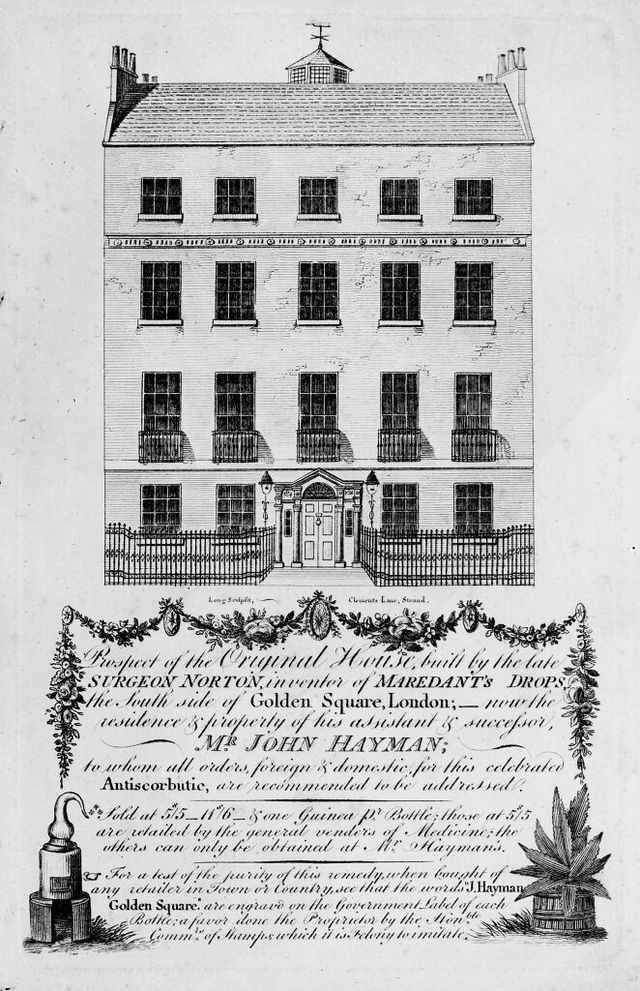 Long Sculpsit, Clements Lane, Strand.
Prospect of the Original House, built by the late
SURGEON NORTON, inventor of MAREDANT'S DROPS,
the South side of Golden Square, London; — now the
residence & property of his assistant & successor,
MR. JOHN HAYMAN;
to whom all orders, foreign & domestic, for this celebrated
Antiscorbutic, are recommended to be addressed.
Sold at 5/5 — 11/6 — & one Guinea pr. Bottle; those at 5/5
are retailed by the general venders of Medicine; the
others can only be obtained at Mr. Hayman's.
For a test of the purity of this remedy, when bought of
any retailer in Town or Country, see that the words "J. Hayman
Golden Square." are engrav'd on the Government Label of each
Bottle; a favor done the Proprietor by the Honble.
Commrs. of Stamps; which it is Felony to imitate.